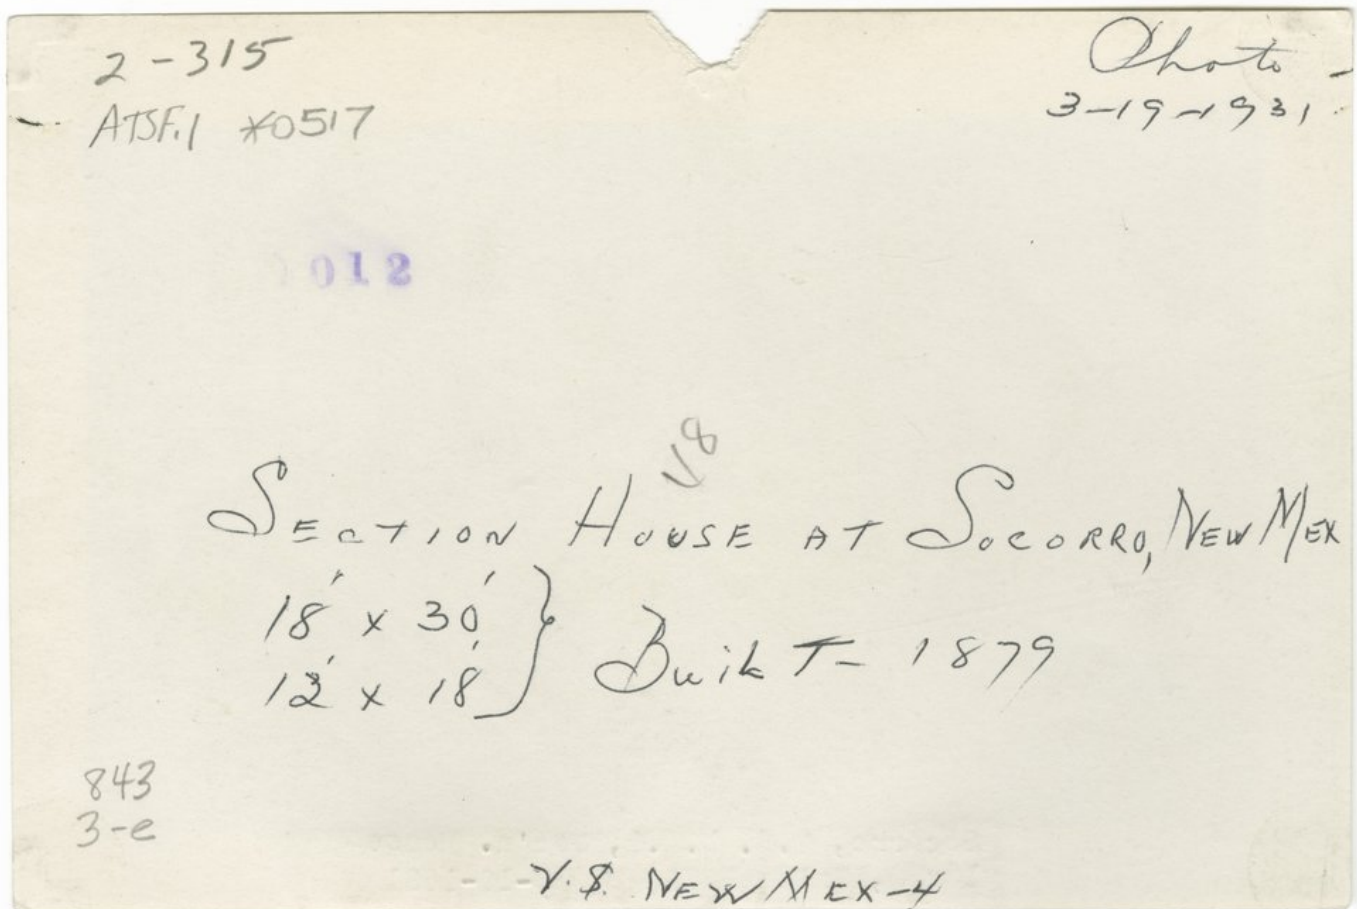 2-315
Photo
ATSF.1 *0517
3-19-1931
012
V8
Section House at Socorro, New Mex
18' x 30'
12' x 18'
Built - 1879
843
3-e
V.S. New Mex-4